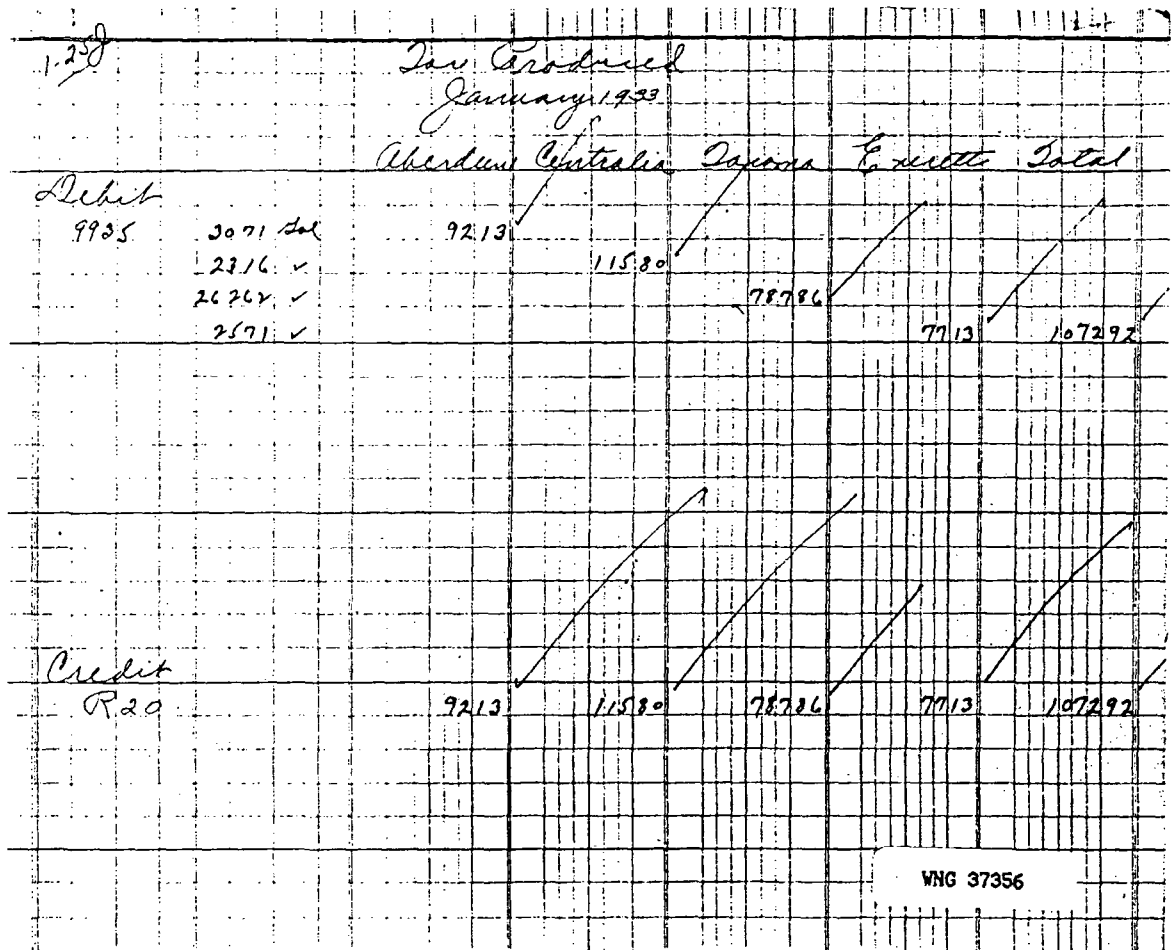 1-25J
Tar Produced
January 1933
Aberdeen Centralia Tacoma Everett Total
Debit
9935 3071 Gal 9213
2316 ✓ 11580
26262 ✓ 78786
2571 ✓ 7713 107292
Credit
R20 9213 11580 78786 7713 107292
WNG 37356